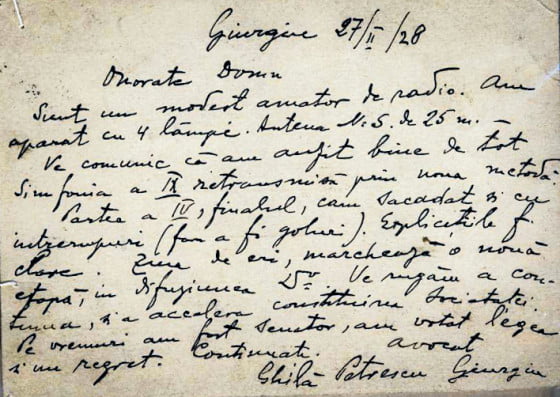 Giurgiu 27/II/28
Onorate Domn
Sunt un modest amator de radio. Am
aparat cu 4 lămpi. Antena N.S. de 25 m. –
Ve comunic că am auzit bine de tot
Simfonia a IX retransmisă prin noua metodă
Partea a IV, finalul, cam sacadat și cu
intreruperi (fara a fi goluri). Explicațiile f.
clare. Ziua de eri, marchează o nouă
etapă, in difuziunea Dv. Ve rugăm a con-
tinua, și a accelera constituirea Societatei.
Pe vremuri am fost senator, am votat legea
și nu regret. Continuati. avocat
Ghiță Petrescu Giurgiu